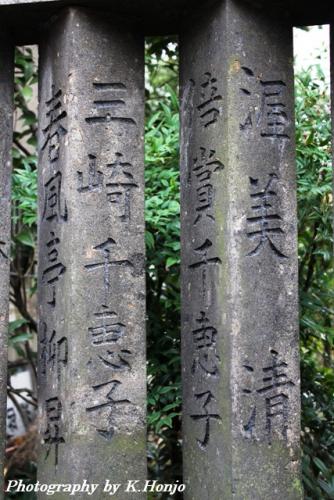 渥美清
倍賞千恵子
三崎千恵子
春風亭柳昇
Photography by K.Honjo